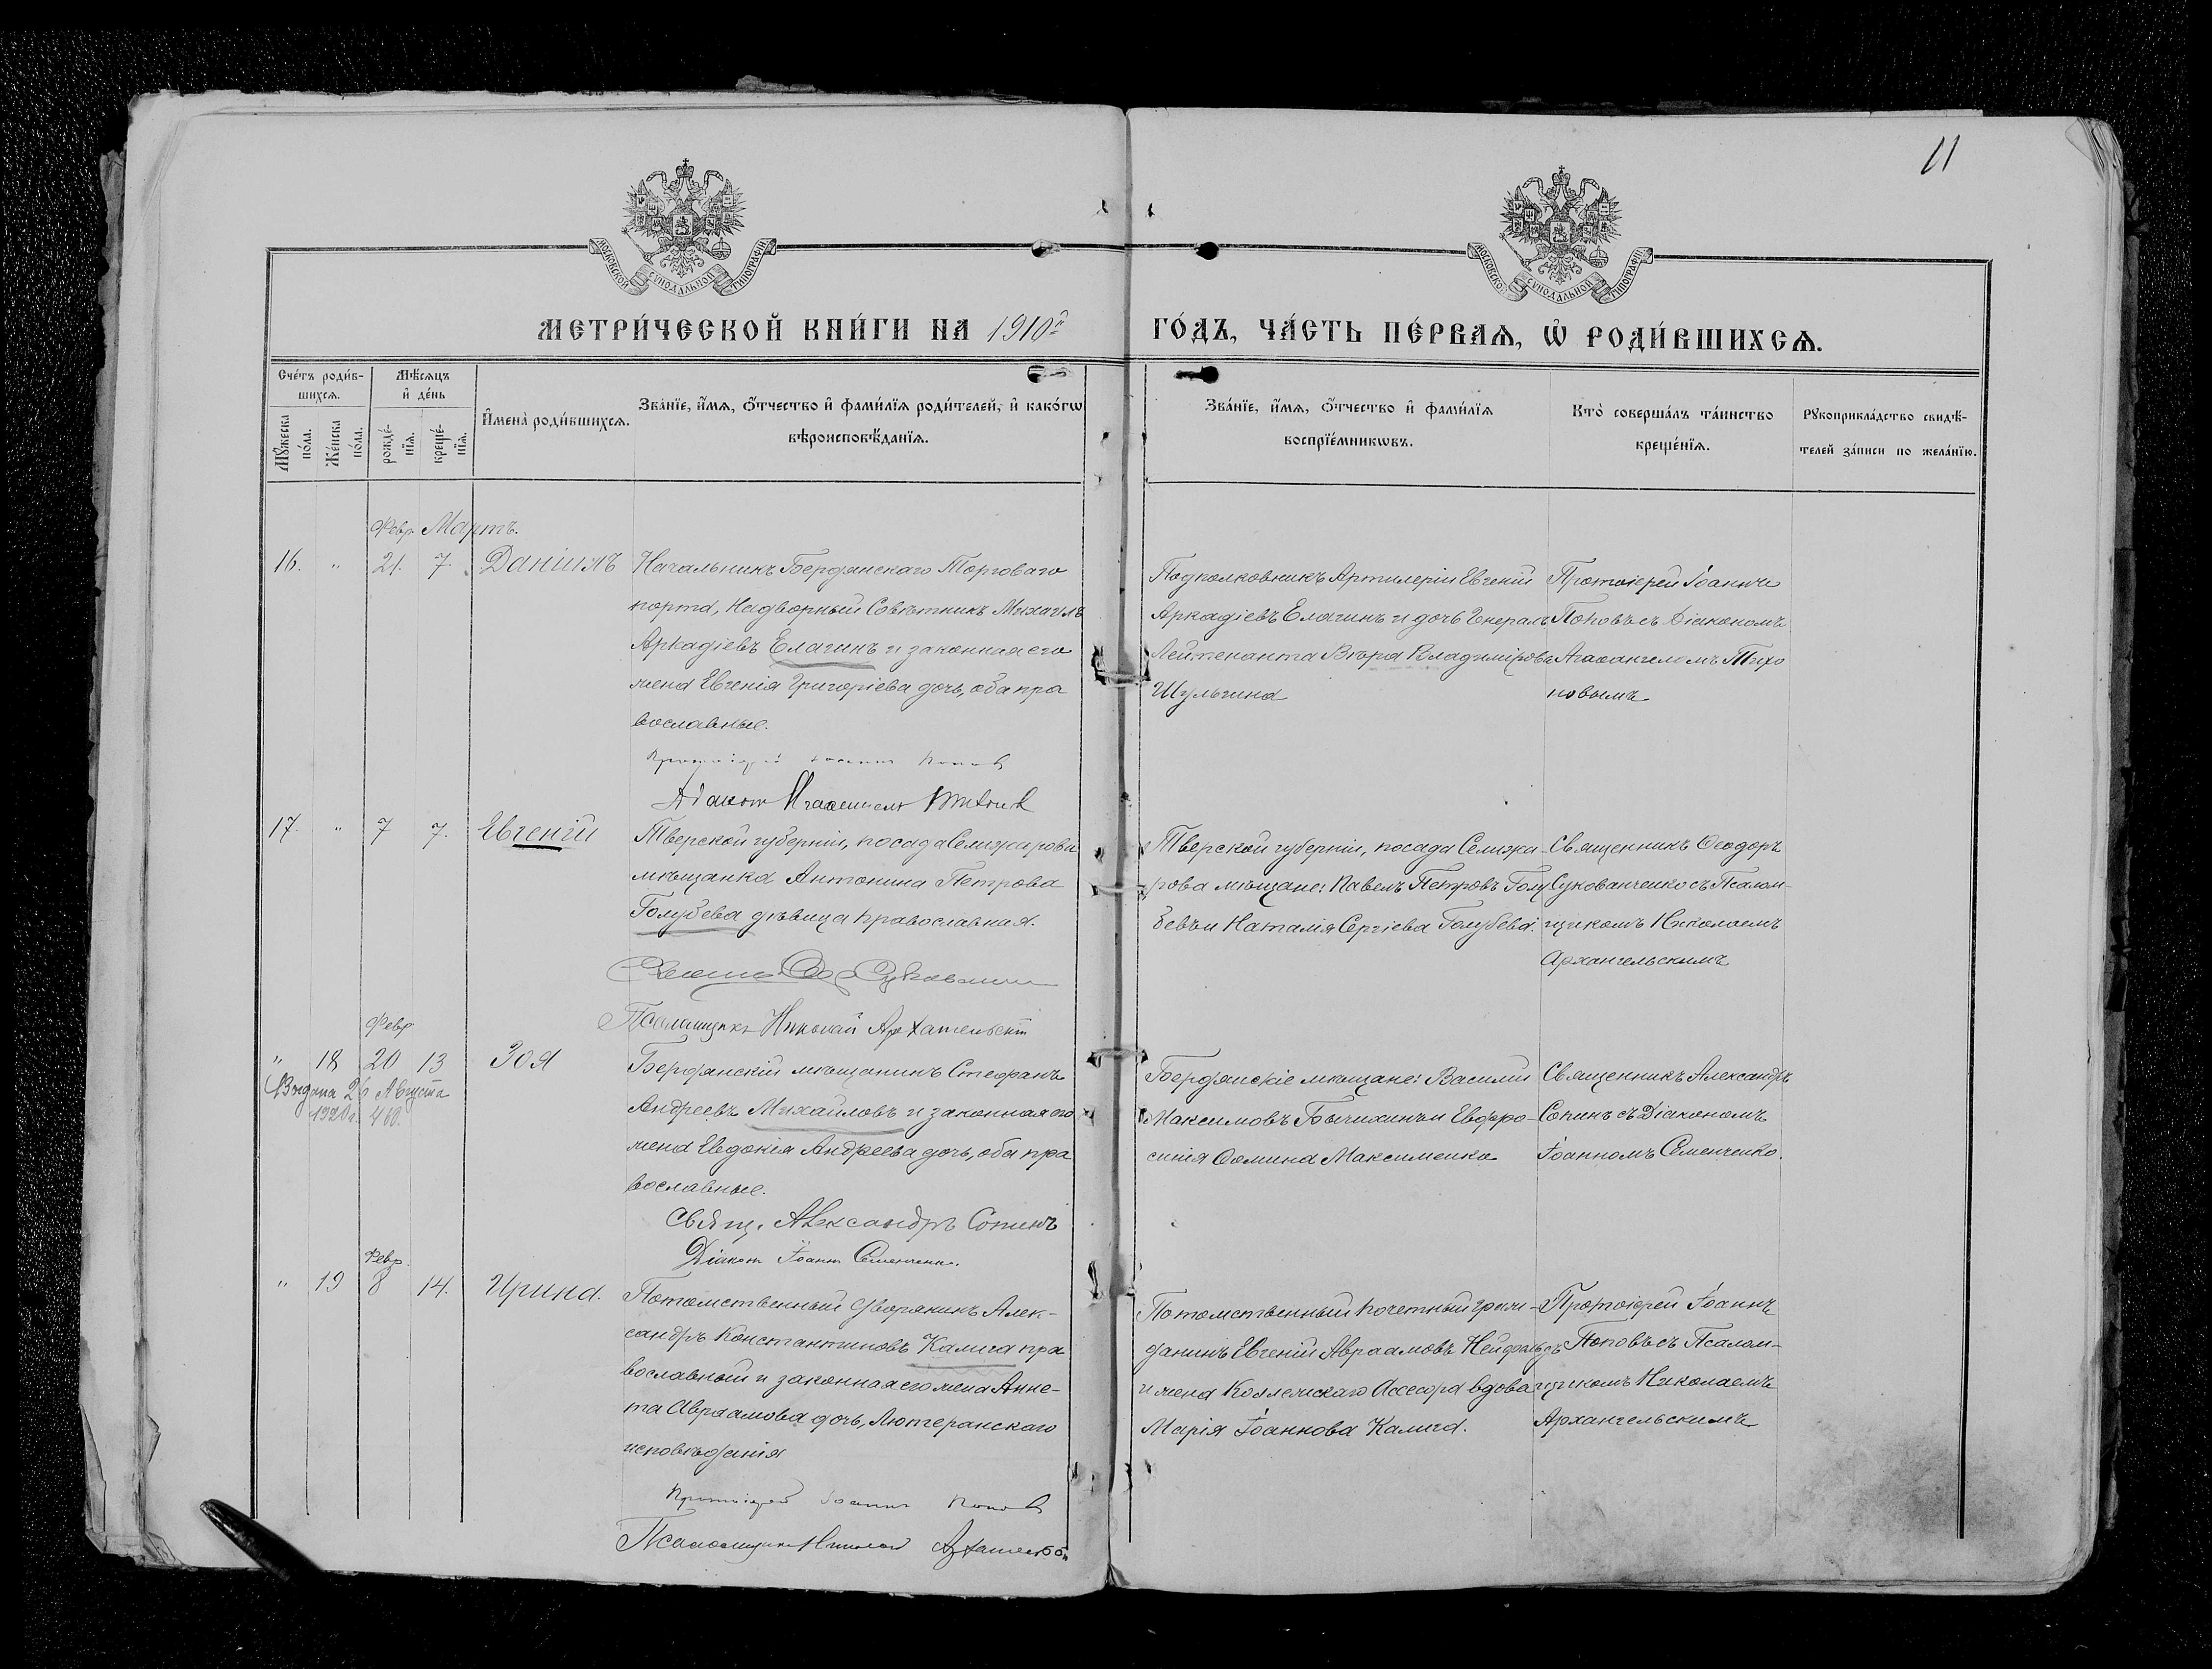 11
МОСКОВСКОЙ СѴНОДАЛЬНОЙ ТИПОГРАФІИ
МОСКОВСКОЙ СѴНОДАЛЬНОЙ ТИПОГРАФІИ
МЕТРИ́ЧЕСКОЙ КНИ́ГИ НА 1910й ГО́ДЪ, ЧА́СТЬ ПЕ́РВАѦ, Ѡ҆ РОДИ́ВШИХСѦ.
Сче́тъ роди́в-
шихсѧ.
Мꙋ́жеска
по́ла.
Же́нска
по́ла.
Мѣ́сѧцъ
и҆ де́нь
рожде́-
нїѧ.
креще́-
нїѧ.
И҆мена̀ роди́вшихсѧ.
Зва́нїе, и҆́мѧ, ѻ҆́тчество и҆ фамі́лїѧ роди́телей, и҆ како́гѡ
вѣроисповѣ́данїѧ.
Зва́нїе, и҆́мѧ, ѻ҆́тчество и҆ фамі́лїѧ
воспрїе́мникѡвъ.
Кто̀ соверша́лъ та́инство
креще́нїѧ.
Рꙋкоприкла́дство свидѣ́-
телей за́писи по жела́нїю.
Февр. Мартъ.
16. " 21. 7. Даніилъ
Начальникъ Бердянскаго Торговаго
порта, Надворный Совѣтникъ Михаилъ
Аркадіевъ Елагинъ и законная его
жена Евгенія Григоріева дочь, оба пра
вославные.
Протоіерей Іоаннъ Попов
Подполковникъ Артилеріи Евгеній
Аркадіевъ Елагинъ и дочь Генералъ
Лейтенанта Вѣра Владимірова
Шульгина
Протоіерей Іоаннъ
Поповъ съ Діакономъ
Агаѳангеломъ Тихо
новымъ
17. " 7 7. Евгеній
Тверской губерніи, посада Селижарова
мѣщанка Антонина Петрова
Голубева дѣвица православная.
Псаломщикъ Николай Архангельскій
Тверской губерніи, посада Селижа-
рова мѣщане: Павелъ Петровъ Голу
бевъ и Наталія Сергіева Голубева.
Священникъ Ѳеодоръ
Сукованченко съ Псалом-
щикомъ Николаемъ
Архангельскимъ
Февр.
" 18 20 13 Зоя
Выдана 26 Августа
1920 г. 460.
Бердянскій мѣщанинъ Стефанъ
Андреевъ Михайловъ и законная его
жена Евдокія Андреева дочь, оба пра
вославные.
Свящ. Александръ Сопинъ
Діакон Іоанн Семенченко.
Бердянскіе мѣщане: Василій
Максимовъ Бычихинъ и Евфро-
синія Ѳомина Максименко
Священникъ Александръ
Сопинъ съ Діакономъ
Іоанномъ Семенченко.
Февр.
" 19 8 14. Ирина.
Потомственный дворянинъ Алек-
сандръ Константиновъ Калига пра
вославный и законная его жена Анне-
та Авраамова дочь, Лютеранскаго
исповѣданія
Протоіерей Іоаннъ Попов
Псаломщикъ Николай
Потомственный почетный граж-
данинъ Евгеній Авраамовъ Нейфельдъ
и жена Коллежскаго Ассесора вдова
Марія Іоаннова Калига.
Протоіерей Іоаннъ
Поповъ съ Псалом-
щикомъ Николаемъ
Архангельскимъ